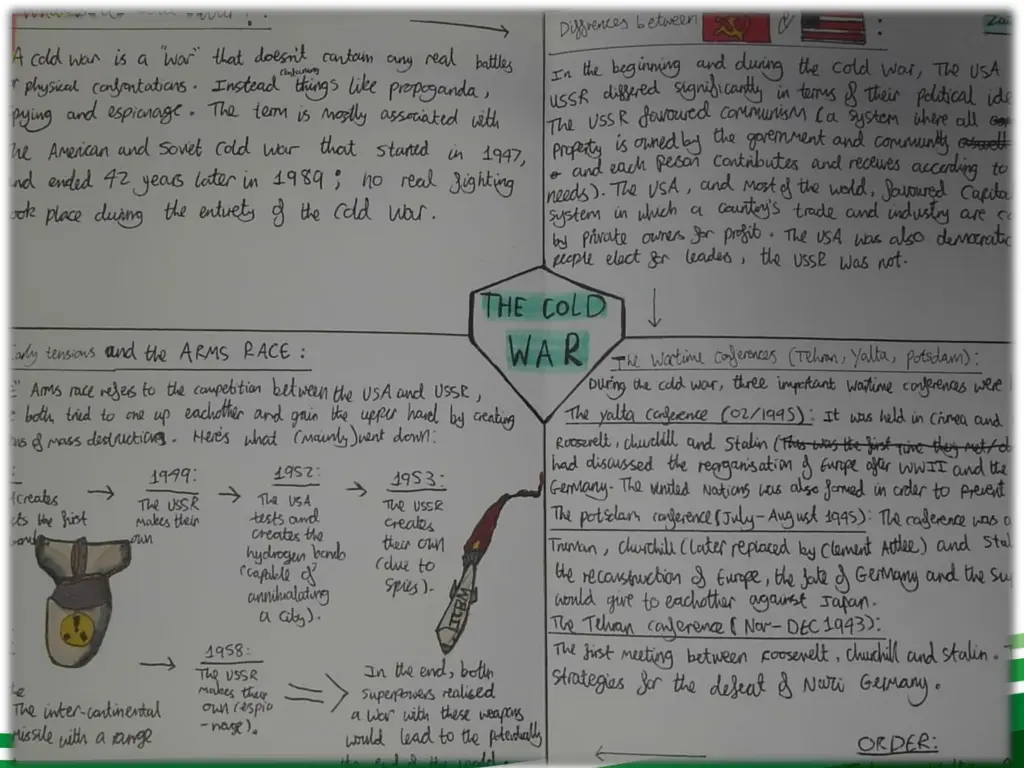 A cold war is a "war" that doesn't contain any real battles
physical confrontations. Instead containing things like propaganda,
pying and espionage. The term is mostly associated with
he American and Soviet Cold War that started in 1947,
nd ended 42 years later in 1989; no real fighting
ook place during the entirety of the Cold War.
Diffrences between & :
In the beginning and during the Cold War, The USA
USSR differed significantly in terms of their political ide
The USSR favoured communism (a system where all
property is owned by the government and community
and each person contributes and receives according to
needs). The USA, and most of the world, favoured Capita
system in which a country's trade and industry are c
by private owners for profit. The USA was also democratic
people elect for leaders, the USSR was not.
THE COLD
WAR
arly tensions and the ARMS RACE:
Arms race refers to the competition between the USA and USSR,
both tried to one up eachother and gain the upper hand by creating
ns of mass destructions. Here's what (mainly) went down:
creates
cts the first
1949:
The USSR
makes their
own
1952:
The USA
tests and
creates the
hydrogen bomb
(capable of
annihualating
a city).
1953:
The USSR
creates
their own
(due to
spies).
ICBM
The inter-continental
missile with a range
1958:
The USSR
makes their
own (espio
-nage).
In the end, both
superpowers realised
a war with these weapons
would lead to the potentially
the end of the world.
The Wartime conferences (Tehran, Yalta, Potsdam):
During the cold war, three important wartime conferences were
The Yalta conference (02/1945): It was held in Crimea and
Roosevelt, churchill and Stalin (This was the first time they met/d
had discussed the reorganisation of Europe after WWII and the
Germany. The United Nations was also formed in order to prevent
The potsdam conference (July-August 1945): The conference was a
Truman, Churchill (later replaced by Clement Attlee) and Stal
the reconstruction of Europe, the fate of Germany and the su
would give to eachother against Japan.
The Tehran conference (Nov-DEC 1943):
The first meeting between Roosevelt, churchill and Stalin. T
Strategies for the defeat of Nazi Germany.
ORDER: